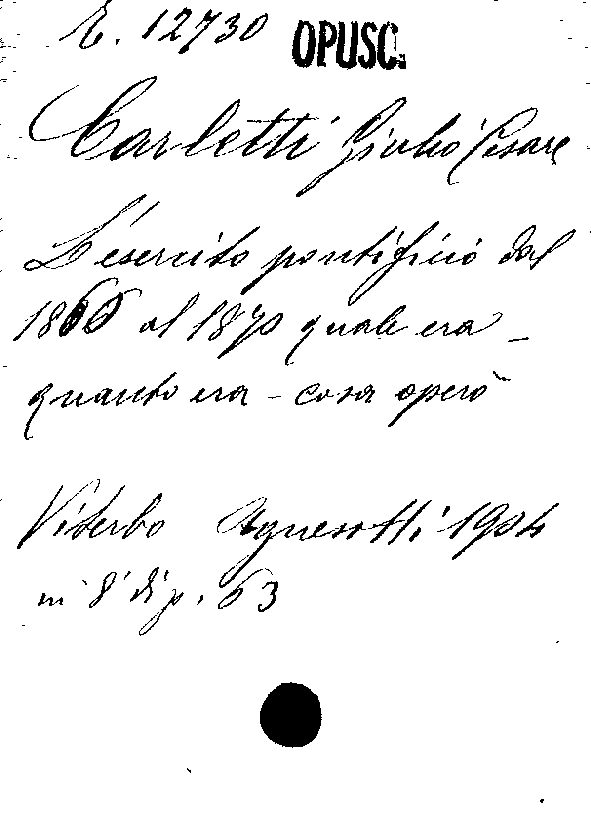 E. 12730 OPUSC.
Carletti Giulio Cesare
L'esercito pontificio dal
1860 al 1870 quale era -
quanto era - cosa operò
Viterbo Agnesotti 1904
in 8° di p. 63